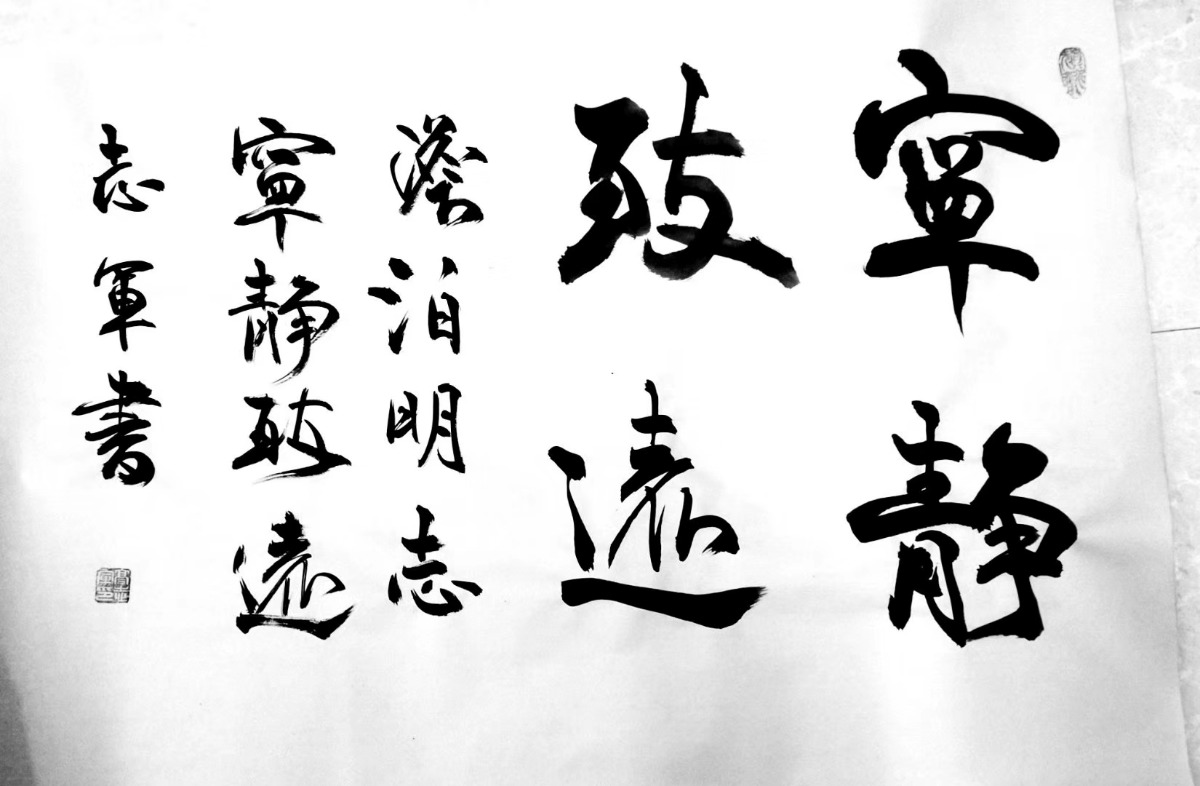 寧靜
致遠
澹泊明志
寧靜致遠
志軍書